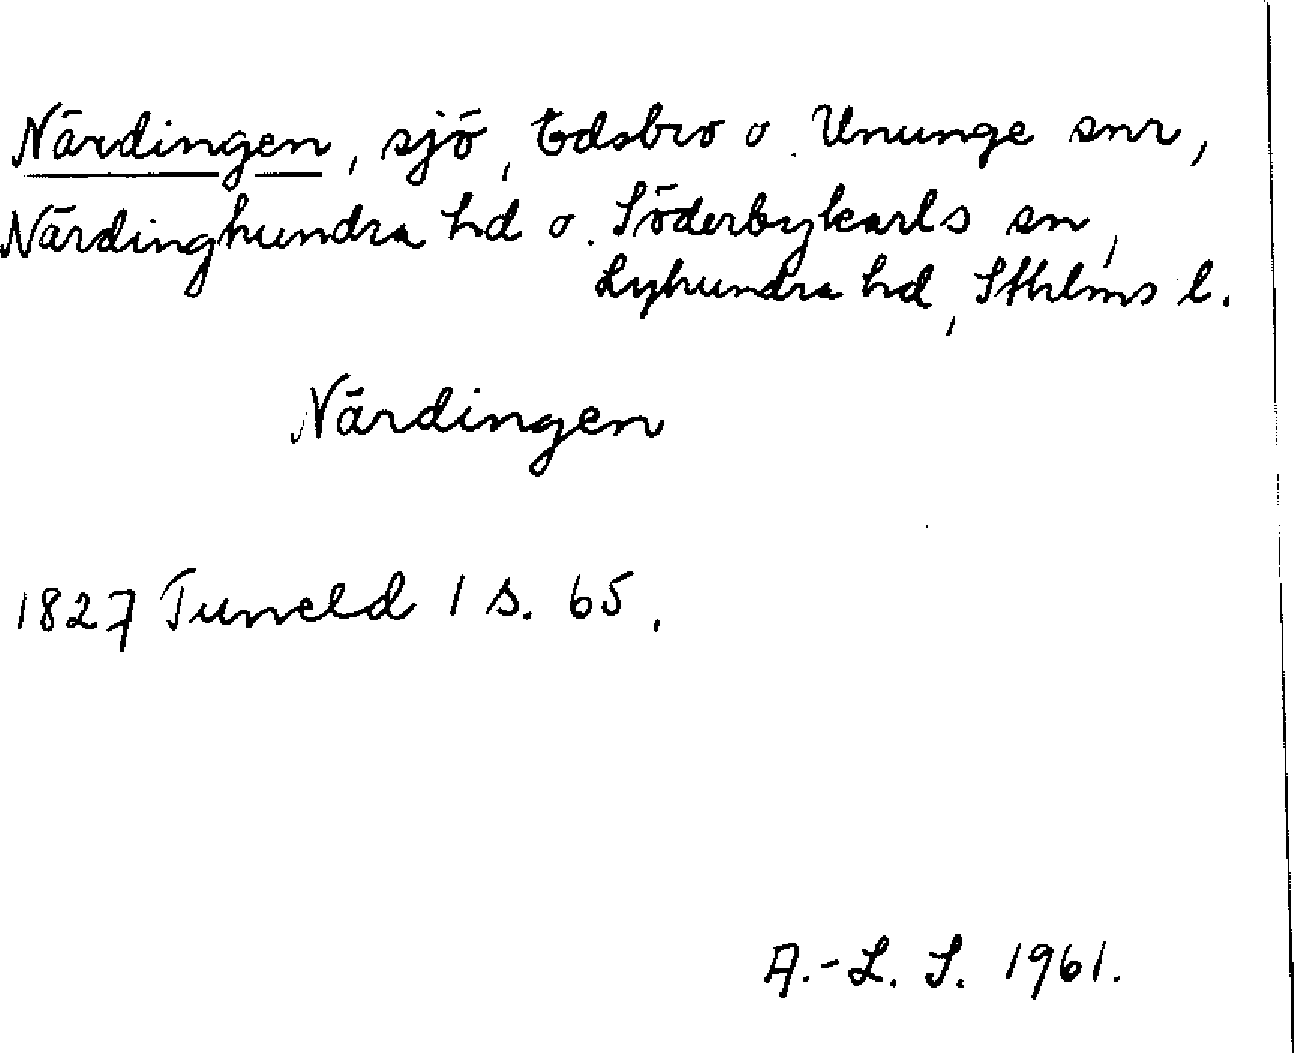 Närdingen, sjö, Edsbro o. Ununge snr,
Närdinghundra hd o. Söderbykarls sn,
Lyhundra hd, Sthlms l.
Närdingen
1827 Tuneld 1 s. 65.
A.-L. S. 1961.